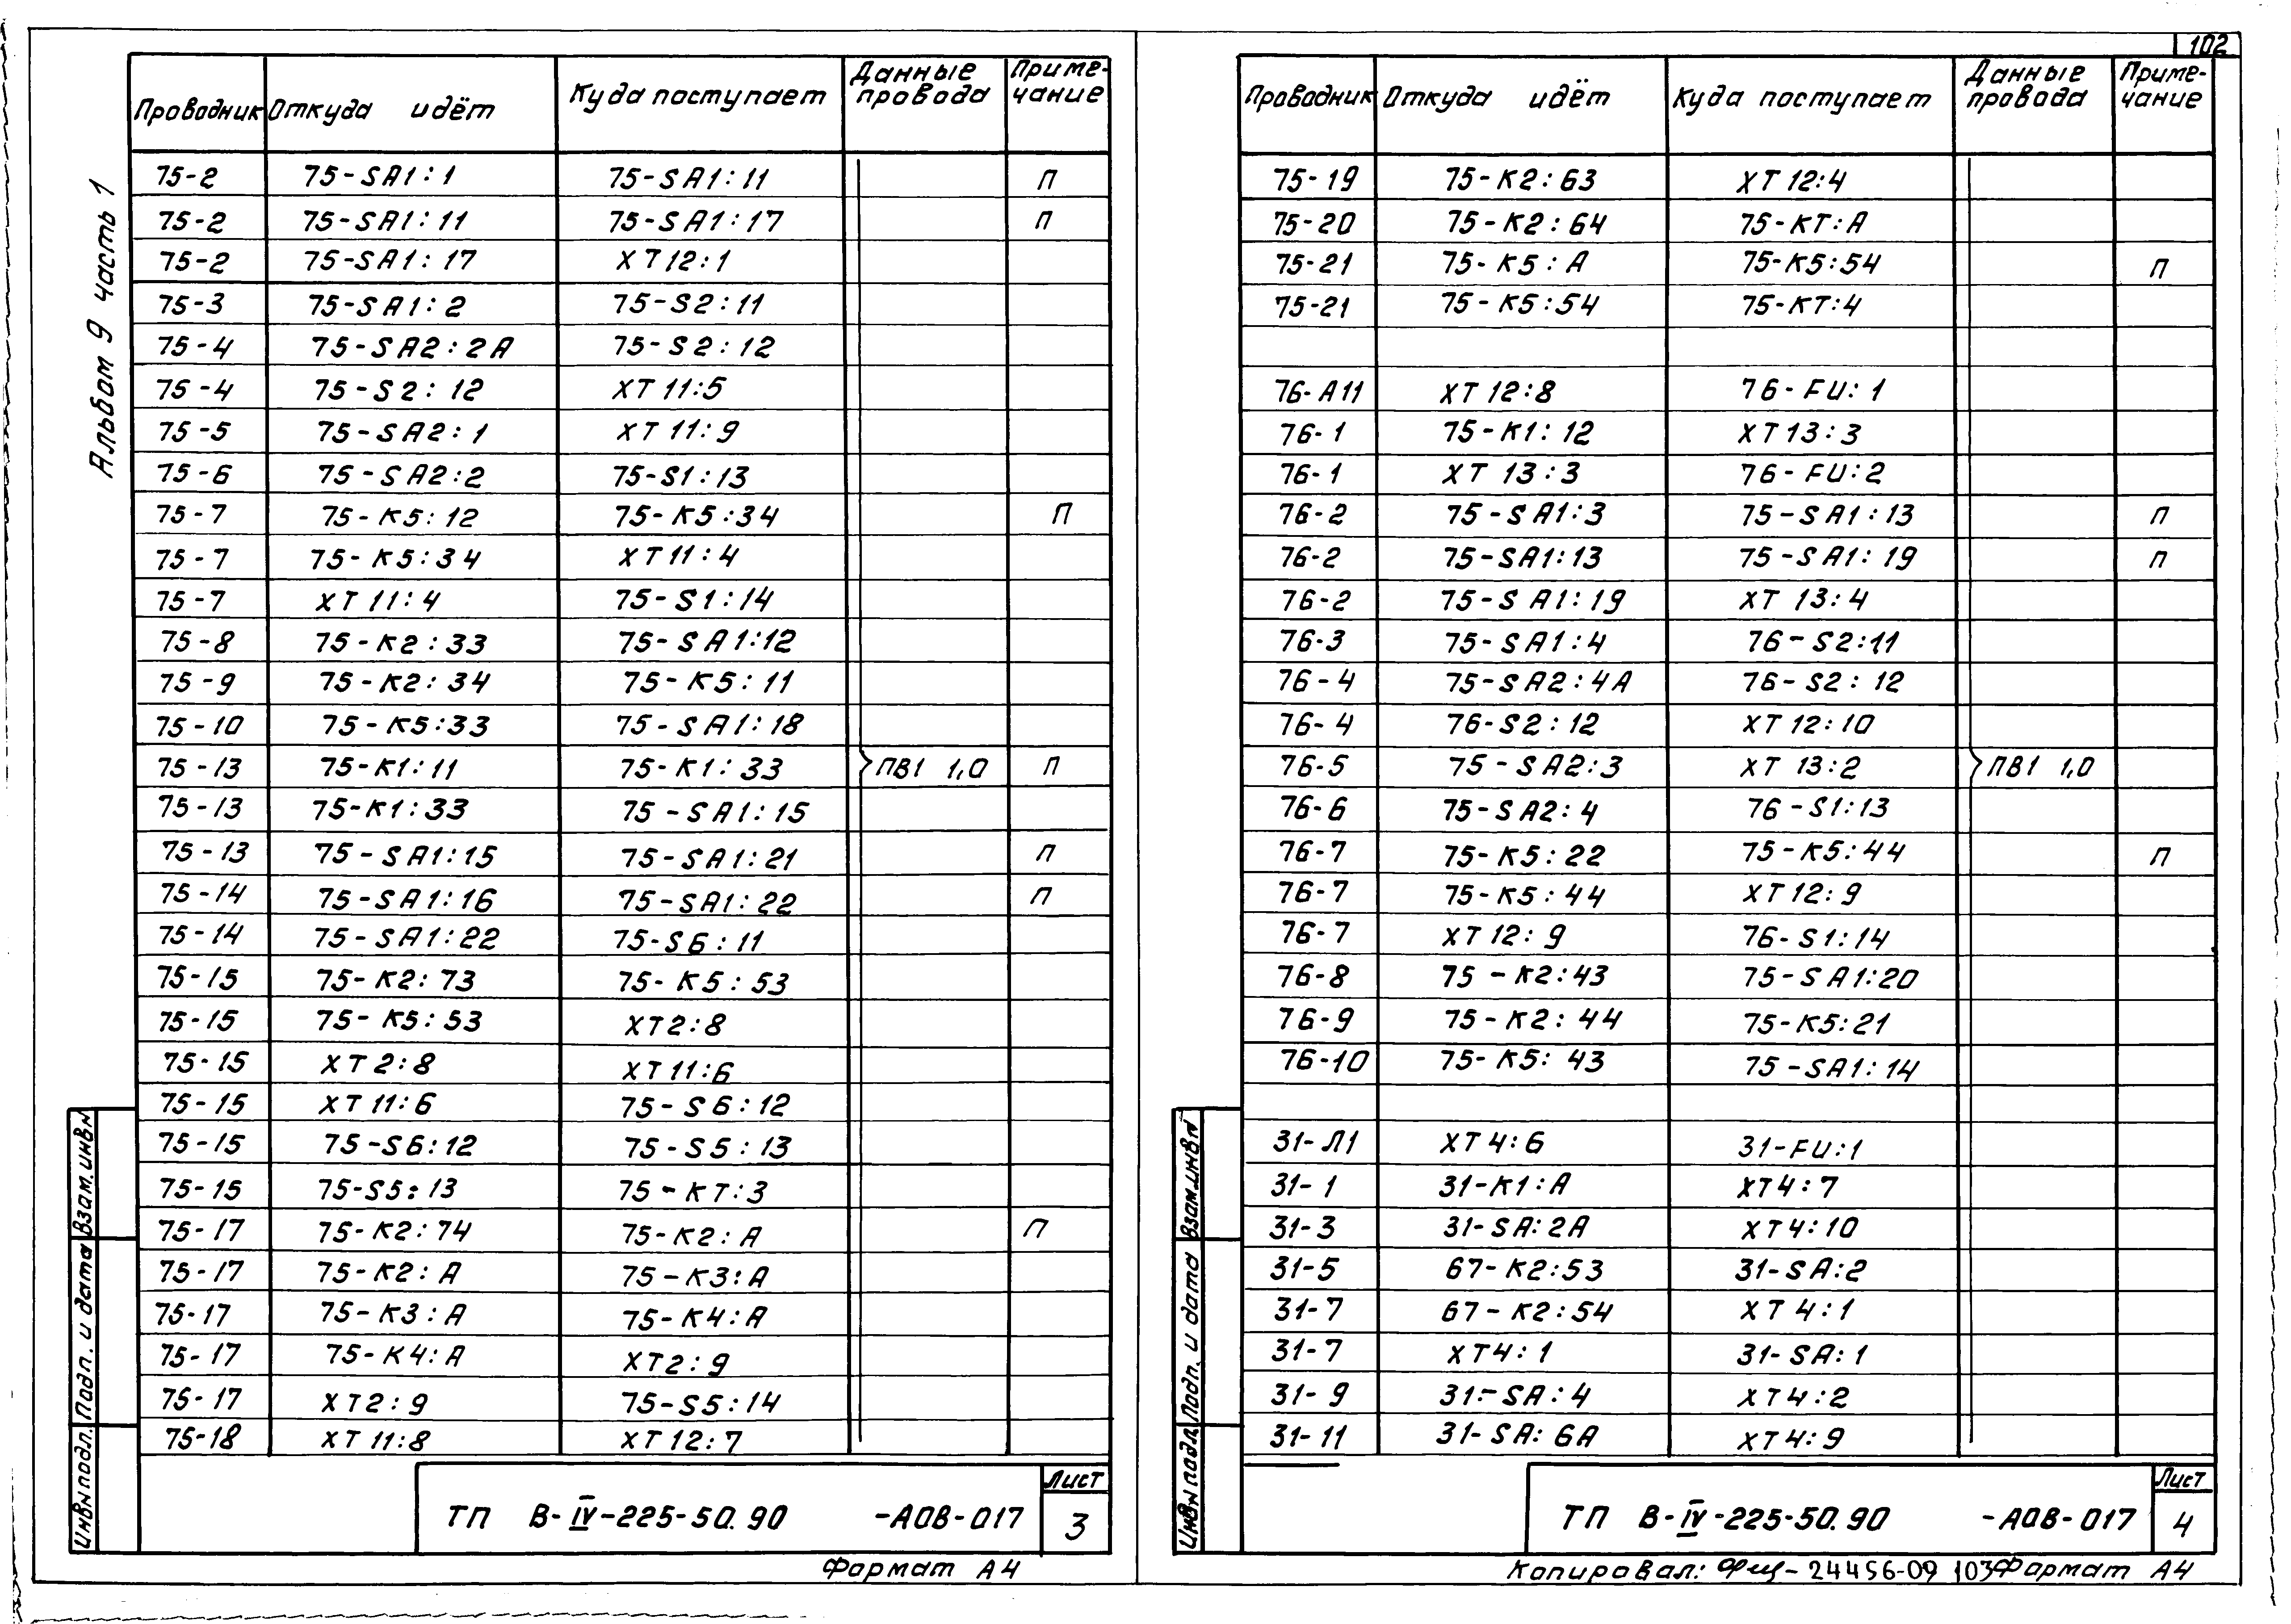 102
Альбом 9 часть 1
Проводник Откуда идёт Куда поступает Данные провода Приме-чание
75-2 75-SA1:1 75-SA1:11 П
75-2 75-SA1:11 75-SA1:17 П
75-2 75-SA1:17 XT12:1
75-3 75-SA1:2 75-S2:11
75-4 75-SA2:2A 75-S2:12
75-4 75-S2:12 XT11:5
75-5 75-SA2:1 XT11:9
75-6 75-SA2:2 75-S1:13
75-7 75-K5:12 75-K5:34 П
75-7 75-K5:34 XT11:4
75-7 XT11:4 75-S1:14
75-8 75-K2:33 75-SA1:12
75-9 75-K2:34 75-K5:11
75-10 75-K5:33 75-SA1:18
75-13 75-K1:11 75-K1:33 ПВ1 1,0 П
75-13 75-K1:33 75-SA1:15
75-13 75-SA1:15 75-SA1:21 П
75-14 75-SA1:16 75-SA1:22 П
75-14 75-SA1:22 75-S6:11
75-15 75-K2:73 75-K5:53
75-15 75-K5:53 XT2:8
75-15 XT2:8 XT11:6
75-15 XT11:6 75-S6:12
75-15 75-S6:12 75-S5:13
75-15 75-S5:13 75-KT:3
75-17 75-K2:74 75-K2:A П
75-17 75-K2:A 75-K3:A
75-17 75-K3:A 75-K4:A
75-17 75-K4:A XT2:9
75-17 XT2:9 75-S5:14
75-18 XT11:8 XT12:7
Взам.инв№
Подп. и дата
Инв№подл.
ТП В-IV-225-50.90 -АОВ-017
Лист
3
Формат А4
Проводник Откуда идёт Куда поступает Данные провода Приме-чание
75-19 75-K2:63 XT12:4
75-20 75-K2:64 75-KT:A
75-21 75-K5:A 75-K5:54 П
75-21 75-K5:54 75-KT:4
76-A11 XT12:8 76-FU:1
76-1 75-K1:12 XT13:3
76-1 XT13:3 76-FU:2
76-2 75-SA1:3 75-SA1:13 П
76-2 75-SA1:13 75-SA1:19 П
76-2 75-SA1:19 XT13:4
76-3 75-SA1:4 76-S2:11
76-4 75-SA2:4A 76-S2:12
76-4 76-S2:12 XT12:10
76-5 75-SA2:3 XT13:2 ПВ1 1,0
76-6 75-SA2:4 76-S1:13
76-7 75-K5:22 75-K5:44 П
76-7 75-K5:44 XT12:9
76-7 XT12:9 76-S1:14
76-8 75-K2:43 75-SA1:20
76-9 75-K2:44 75-K5:21
76-10 75-K5:43 75-SA1:14
31-Л1 XT4:6 31-FU:1
31-1 31-K1:A XT4:7
31-3 31-SA:2A XT4:10
31-5 67-K2:53 31-SA:2
31-7 67-K2:54 XT4:1
31-7 XT4:1 31-SA:1
31-9 31-SA:4 XT4:2
31-11 31-SA:6A XT4:9
Взам.инв№
Подп. и дата
Инв№подл.
ТП В-IV-225-50.90 -АОВ-017
Лист
4
Копировал: 24456-09 103 Формат А4